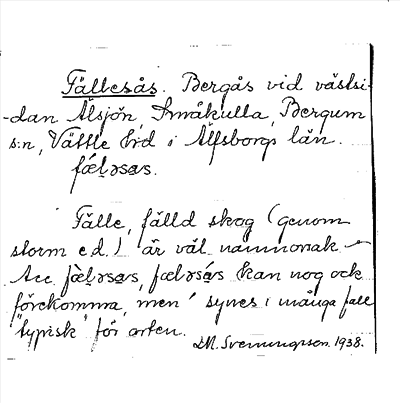 Fällesås. Bergås vid västsi-
-dan Älsjön, Småkulla, Bergum
s:n, Vättle hd i Älfsborgs län.
fǽḷəsas.
Fälle, fälld skog (genom
storm e.d.) är väl
Acc fæ̀ḷəsas, fæləsás kan nog ock
förekomma, men synes i många fall
"typisk" för orten.
M. Svenungsson. 1938.